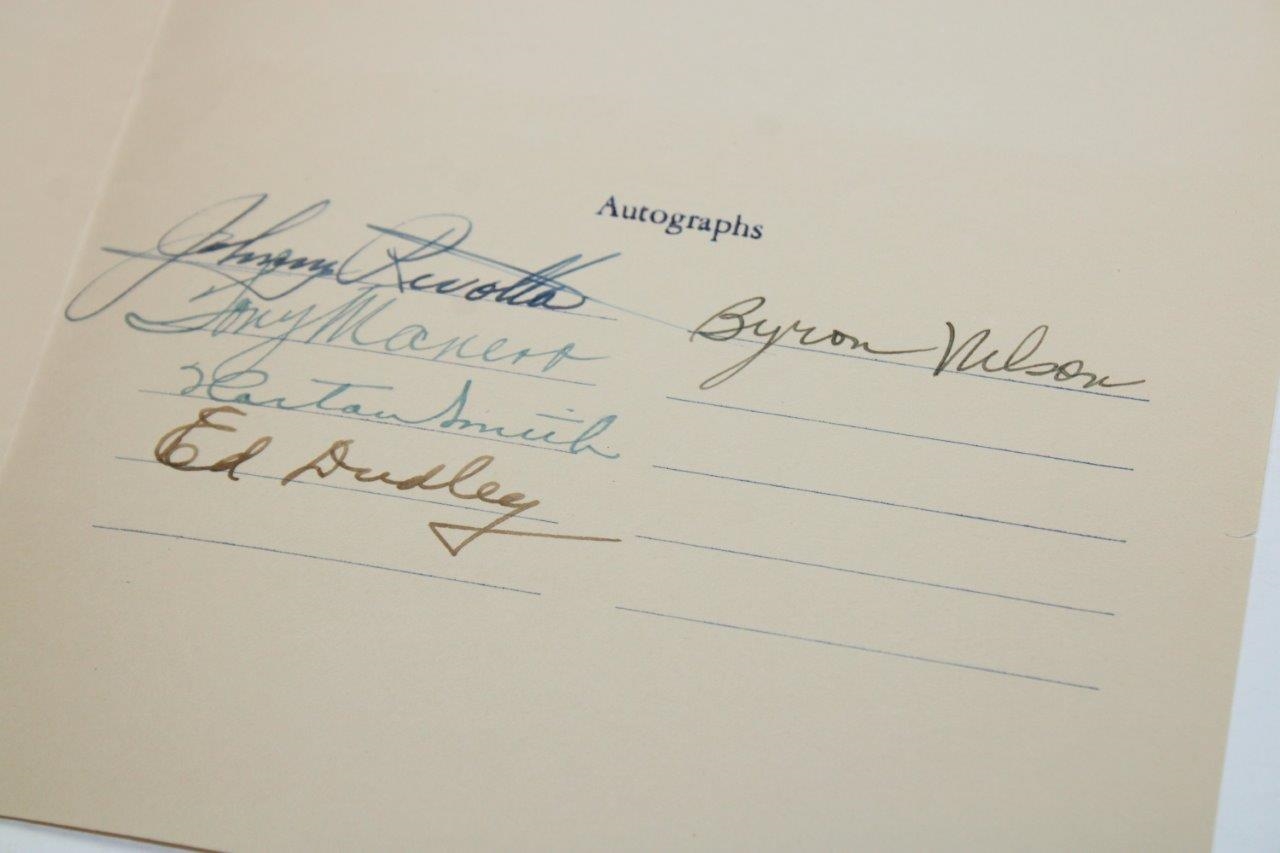 Autographs
Johnny Revolta
Tony Manero
Horton Smith
Ed Dudley
Byron Nelson